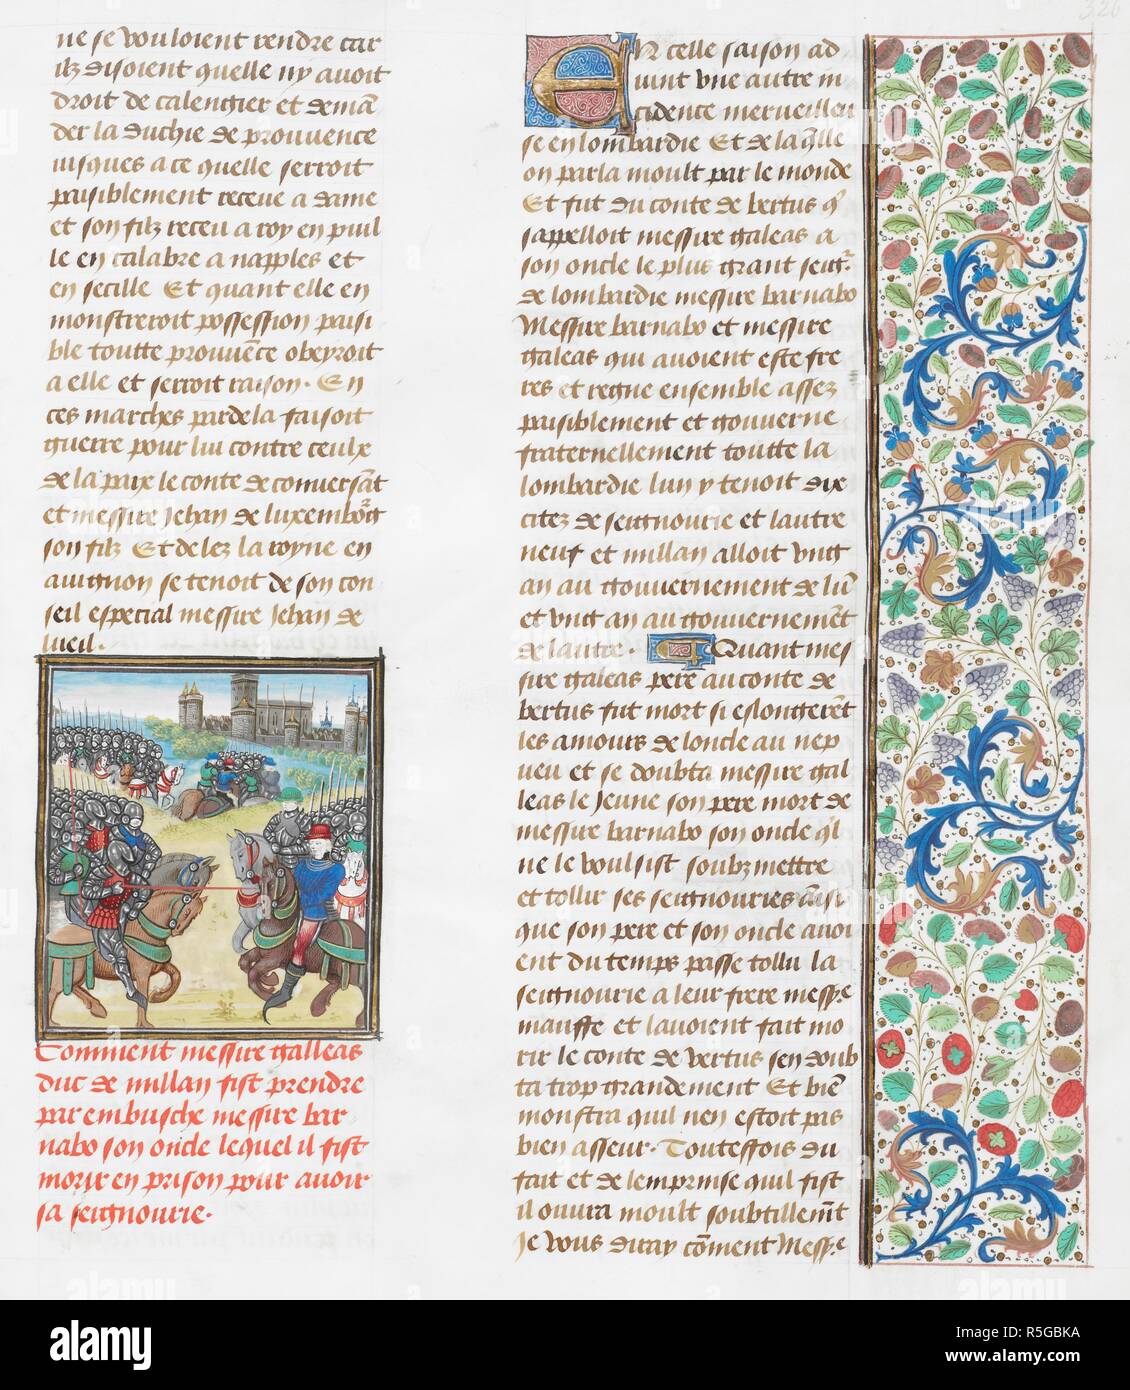 ne se vouloient rendre car
ilz disoient quelle ny avoit
droit de calengier et demā
der la duchie de prouvence
iusques a ce quelle serroit
paisiblement receue a dame
et son filz receu a roy en puil
le en calabre a napples et
en secille Et quant elle en
monstreroit possession paisi
ble toutte prouvēce obeyroit
a elle et serroit raison. En
ces marches par dela faisoit
guerre pour lui contre ceulx
de la paix le conte de conversāt
et messire Jehan de luxembourg
son filz Et delez la royne en
avignon se tenoit de son con
seil especial messire Jehan de
bueil.
Comment messire galleas
duc de millan fist prendre
par embusche messire bar
nabo son oncle lequel il fist
morir en prison pour avoir
sa seignourie.
En celle saison ad
vint une autre in
cidente merveilleu
se en lombardie Et de laq̄lle
on parla moult par le monde
Et fut du conte de vertus q̄
sappelloit messire galeas a
son oncle le plus grant seigr
de lombardie messire barnabo
Messire barnabo et messire
galeas qui avoient este fre
res et regne ensemble assez
paisiblement et gouverne
fraternellement toutte la
lombardie lun y tenoit dix
citez de seignourie et lautre
neuf et millan alloit ung
an au gouvernement de lū
et ung an au gouvernemēt
de lautre. Quant mes
sire galeas pere au conte de
vertus fut mort si eslongerēt
les amours de loncle au nep
veu et se doubta messire gal
leas le Jeune son pere mort de
messire barnabo son oncle q̄l
ne le voulsist soubzmettre
et tollir ses seignouries aīsi
que son pere et son oncle avoi
ent du temps passe tollu la
seignourie a leur frere messre
mauffe et lavoient fait mo
rir le conte de vertus sen doub
ta trop grandement Et biē
monstra quil nen estoit pas
bien asseur. Touteffois du
fait et de lemprinse quil fist
il ouvra moult soubtillemēt
Je vous diray cōment Messre
alamy
Image ID: R5GBKA
www.alamy.com